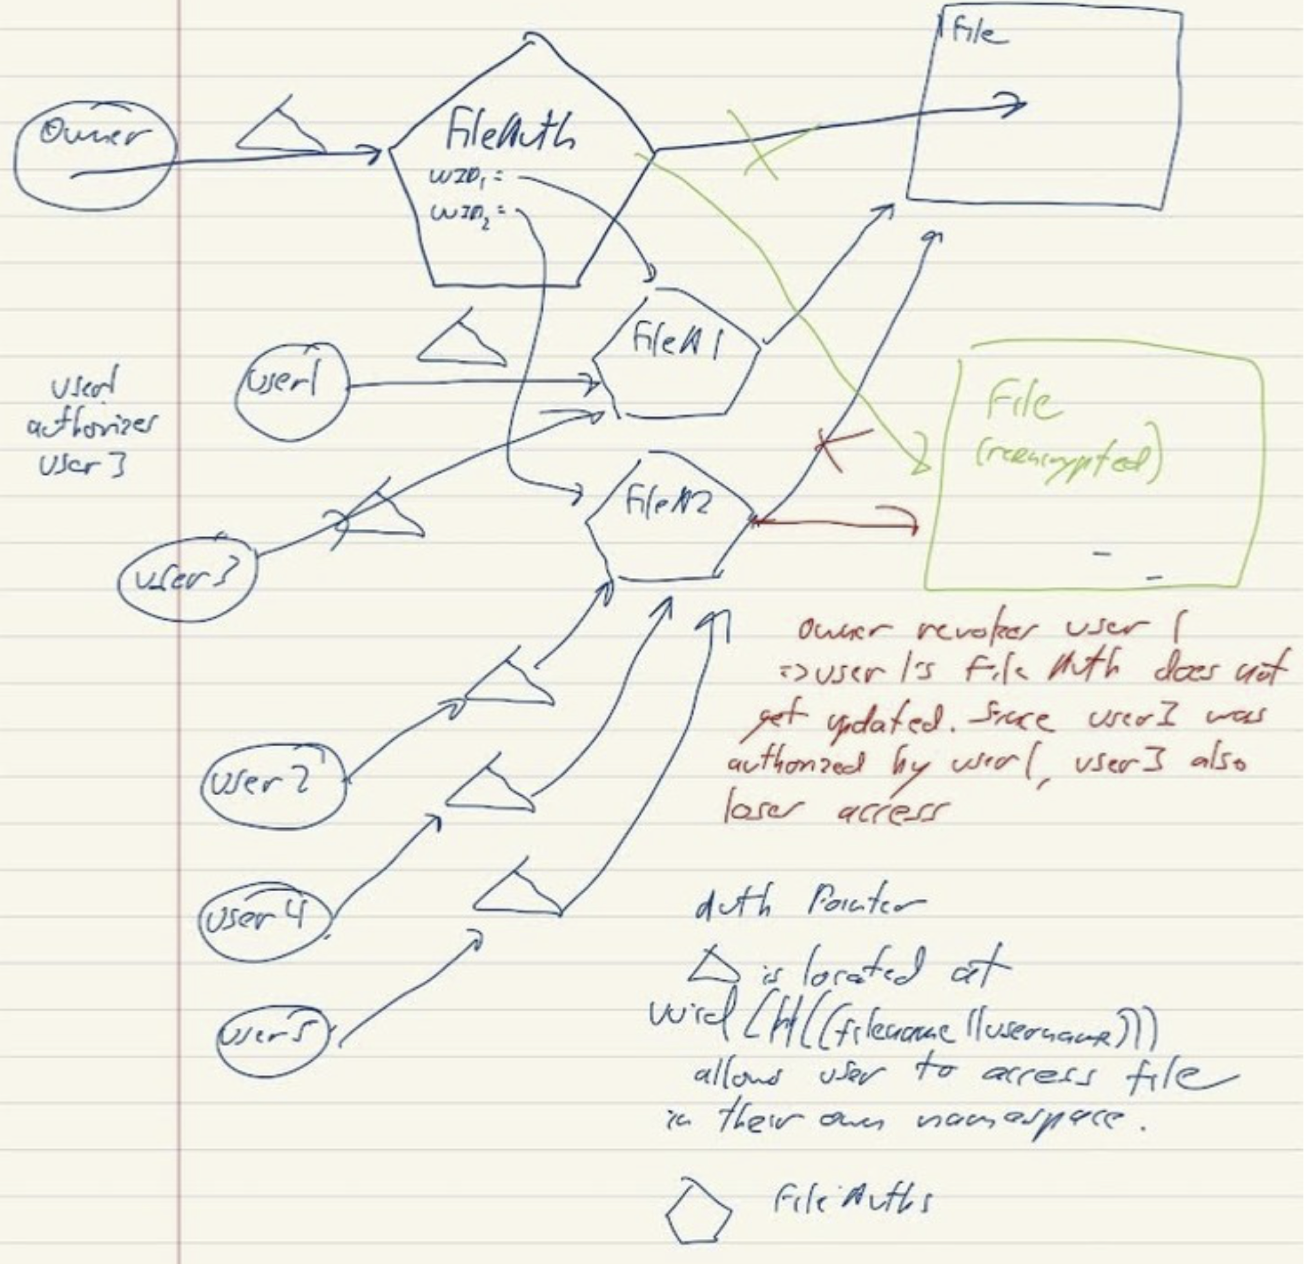 file
Owner
FileAuth
UUID₁ =
UUID₂ =
FileA1
user1
user1
authorizes
user 3
File
(reencrypted)
FileA2
user3
owner revokes user 1
=> user 1's File Auth does not
get updated. Since user3 was
authorized by user1, user3 also
loses access
user 2
user 4
Auth Pointer
is located at
uuid (H((filename||username)))
allows user to access file
in their own namespace.
user5
File Auths